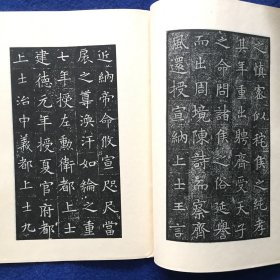 之慎審故秺侯之純孝
其年重出聘齊受天子
之命問諸侯之俗延譽
而出周境陳詩而察齊
風還授宣納上士王言
近納帝命攸宣咫尺當
扆之尊渙汗如綸之重
七年授左勳衛都上士
建德元年授夏官府都
上士治中義都上士九